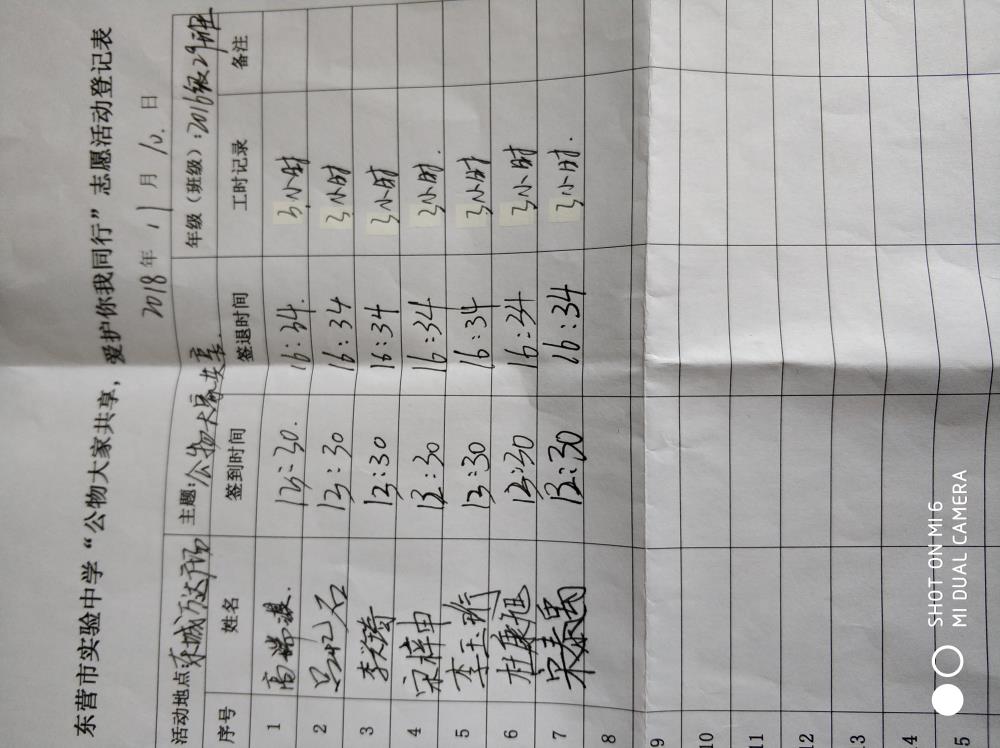 东营市实验中学“公物大家共享，爱护你我同行”志愿活动登记表
2018年11月10.日
活动地点:东城万达广场 主题:公物大家共享. 年级（班级）:2016级29班
序号 姓名 签到时间 签退时间 工时记录 备注
1 高端 13:30. 16:34. 3小时
2 13:30 16:34 3小时
3 李 13:30 16:34 3小时
4 宋梓由 13:30 16:34 3小时.
5 李玉 13:30 16:34 3小时
6 杜康旭 13:30 16:34 3小时
7 宋 13:30 16:34 3小时.
8
9
10
11
12
13
14
15
SHOT ON MI 6
MI DUAL CAMERA